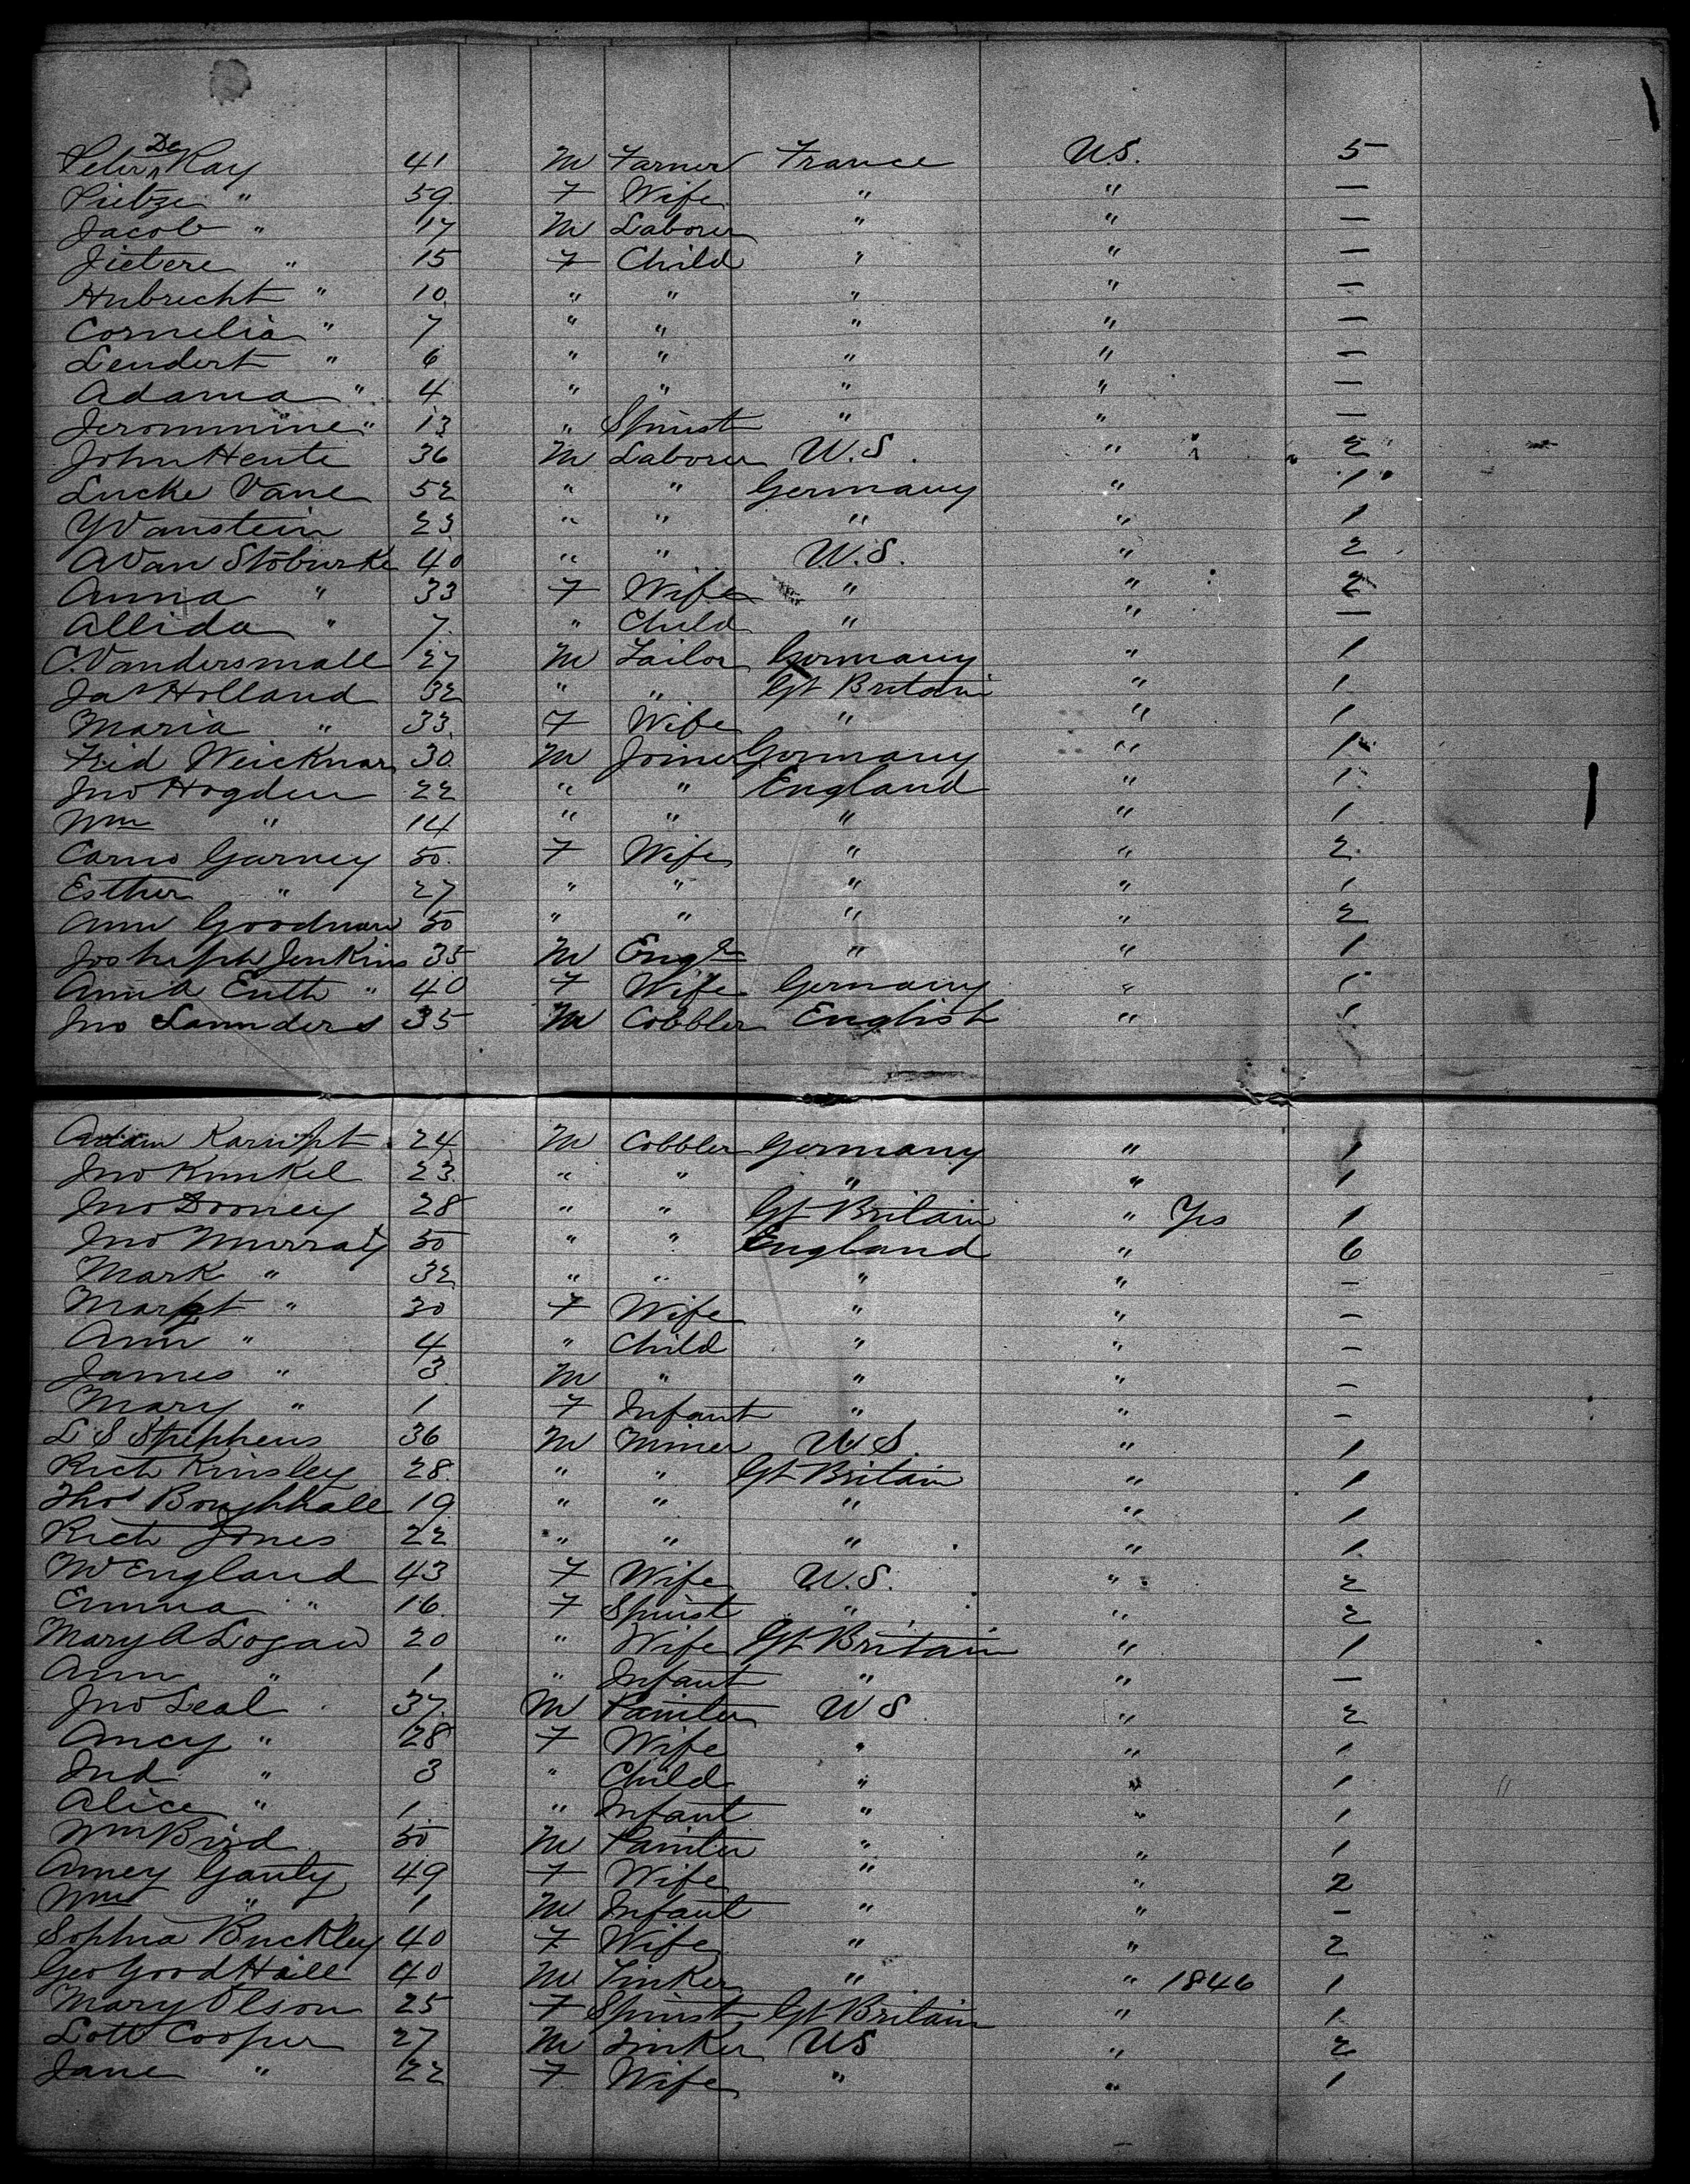 Peter De Kay 41 M Farmer France U.S. 5
Pietze " 59 F Wife " " —
Jacob " 17 M Laborer " " —
Jietere " 15 F Child " " —
Hubrecht " 10 " " " " —
Cornelia " 7 " " " " —
Lendert " 6 " " " " —
Adama " 4 " " " " —
Jerommine " 13 " Spinst " " —
John Hente 36 M Laborer U.S. " 2
Lucke Vane 52 " " Germany " 1
Y Vanstein 23 " " " " 1
A Van Stoburke 40 " " U.S. " 2
Anna " 33 F Wife " " 2
Allida " 7 " Child " " —
C. Vandersmall 27 M Tailor Germany " 1
Jas Holland 32 " " Gt Britain " 1
Maria " 33 F Wife " " 1
Fred Weicknar 30 M Joiner Germany " 1
Jno Hogden 22 " " England " 1
Wm " 14 " " " " 1
Carno Garney 50 F Wife " " 2
Esther " 27 " " " " 1
Ann Goodman 50 " " " " 2
Josheph Jenkins 35 M Engr " " 1
Anna Enth " 40 F Wife Germany " 1
Jno Saunders 35 M Cobbler English " 1
Adam Karupt 24 M Cobbler Germany " 1
Jno Kunkel 23 " " " " 1
Jno Dooney 28 " " Gt Britain " Yes 1
Jno Murray 50 " " England " 6
Mark " 32 " " " " —
Margt " 30 F Wife " " —
Ann " 4 " Child " " —
James " 3 M " " " —
Mary " 1 F Infant " " —
L S Stephens 36 M Miner U.S. " 1
Rich Kinsley 28 " " Gt Britain " 1
Thos Boughhall 19 " " " " 1
Rich Jones 22 " " " " 1
M England 43 F Wife U.S. " 2
Emma " 16 F Spinst " " 2
Mary A Logan 20 " Wife Gt Britain " 1
Ann " 1 " Infant " " —
Jno Leal 37 M Painter U S " 2
Ancy " 28 F Wife " " 1
Ind " 3 " Child " " 1
Alice " 1 " Infant " " 1
Wm Bird 50 M Painter " " 1
Amey Ganty 49 F Wife " " 2
Wm " 1 M Infant " " —
Sophia Buckley 40 F Wife " " 2
Geo Good Hall 40 M Tinker " " 1846 1
Mary Olson 25 F Spinst Gt Britain " 1
Lott Cooper 27 M Tinker US " 2
Jane " 22 F Wife " " 1